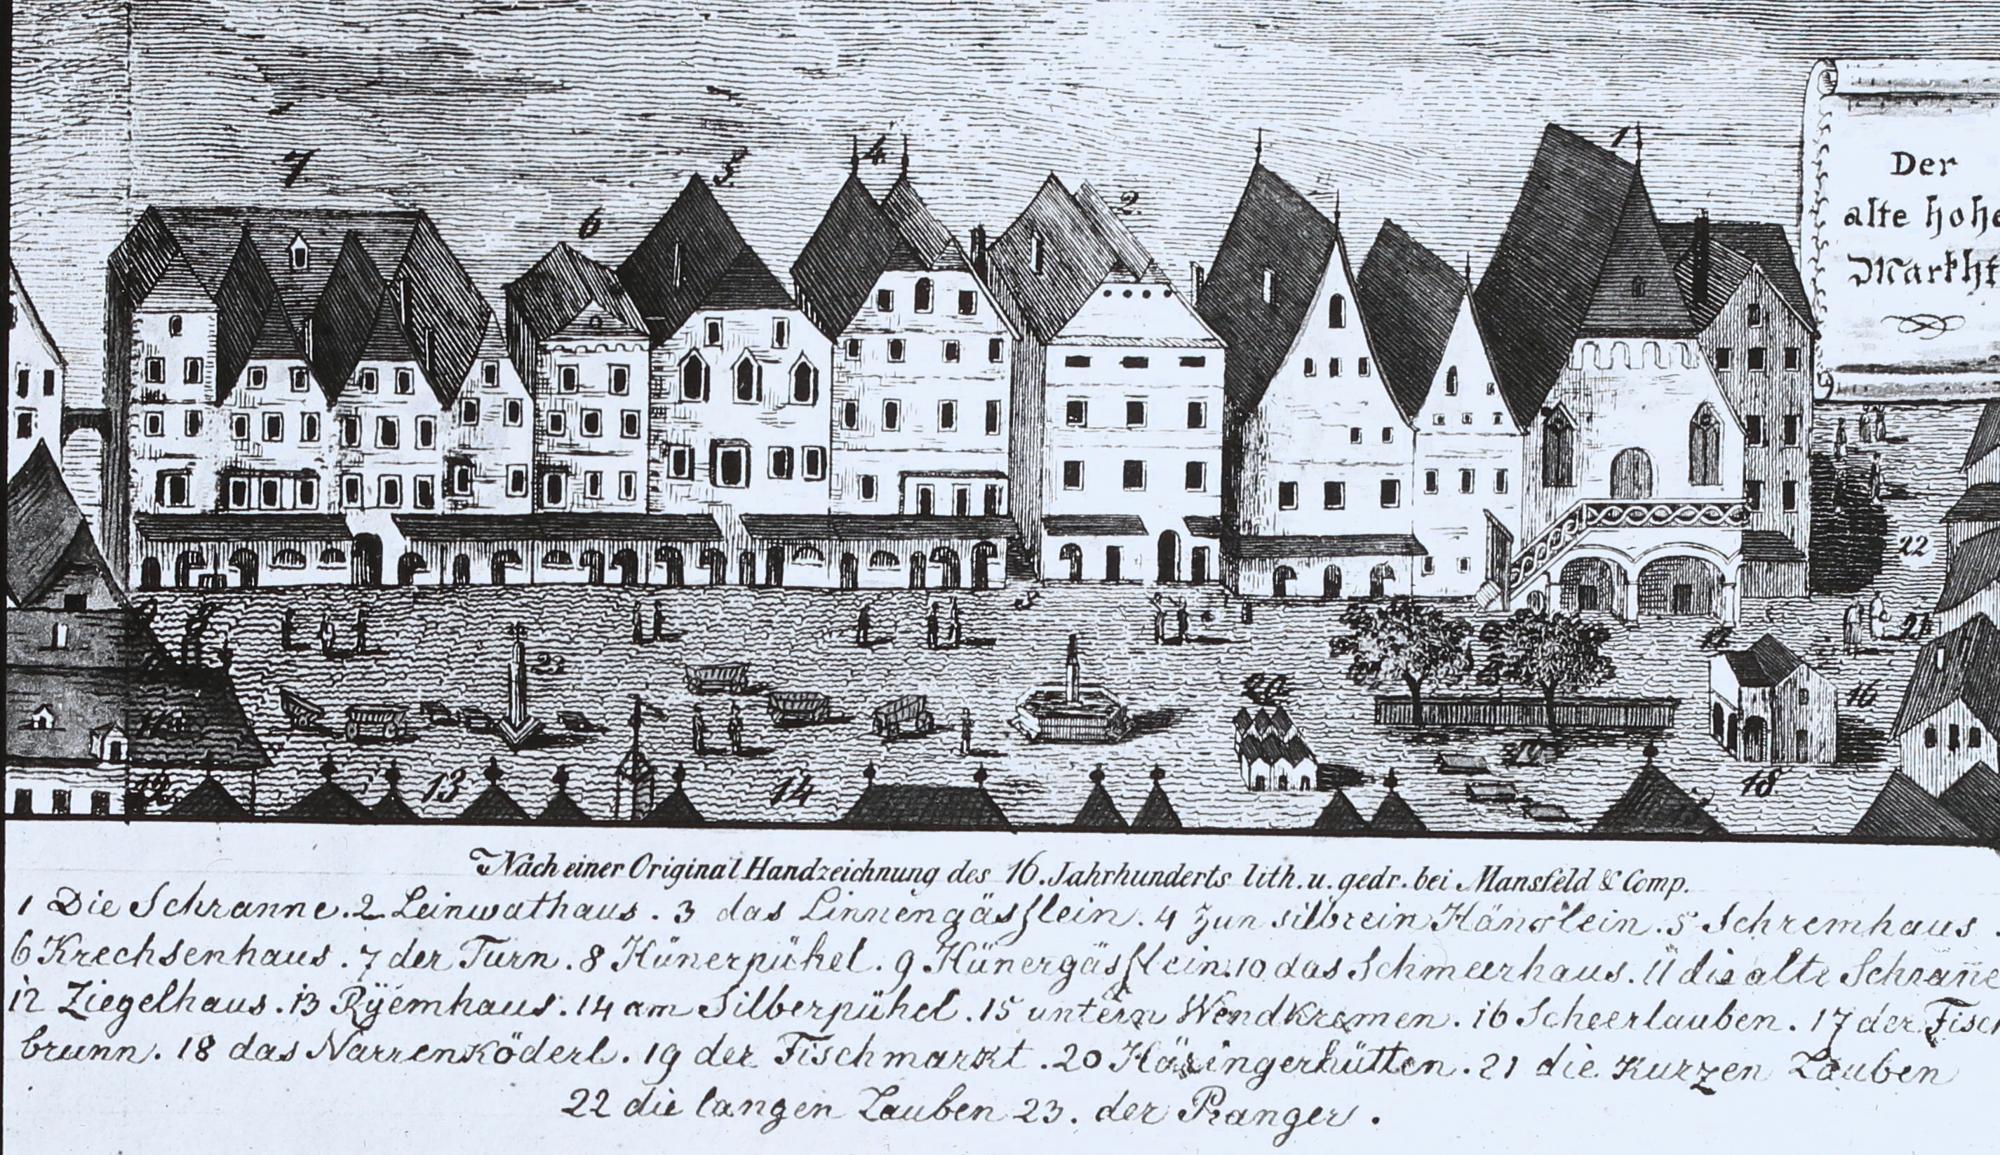 7
5.
4.
1
2.
6
Der
alte hohe
Markht
22
21
23
16
20
19
18
12
13
14
Nach einer Original Handzeichnung des 16. Jahrhunderts lith. u. gedr. bei Mansfeld & Comp.
1 Die Schranne. 2 Leinwathaus. 3 das Linnengässlein. 4 zun silbrein Händlein. 5 Schremhaus.
6 Krechsenhaus. 7 der Turn. 8 Hünerpühel. 9 Hünergässlein. 10 das Schmeerhaus. 11 die alte Schrañe
12 Ziegelhaus. 13 Rÿemhaus. 14 am Silberpühel. 15 untern Wendkremen. 16 Scheerlauben. 17 der Fisch
brunn. 18 das Narrenköderl. 19 der Fischmarkt. 20 Häringerhütten. 21 die kurzen Lauben
22 die langen Lauben 23. der Pranger.